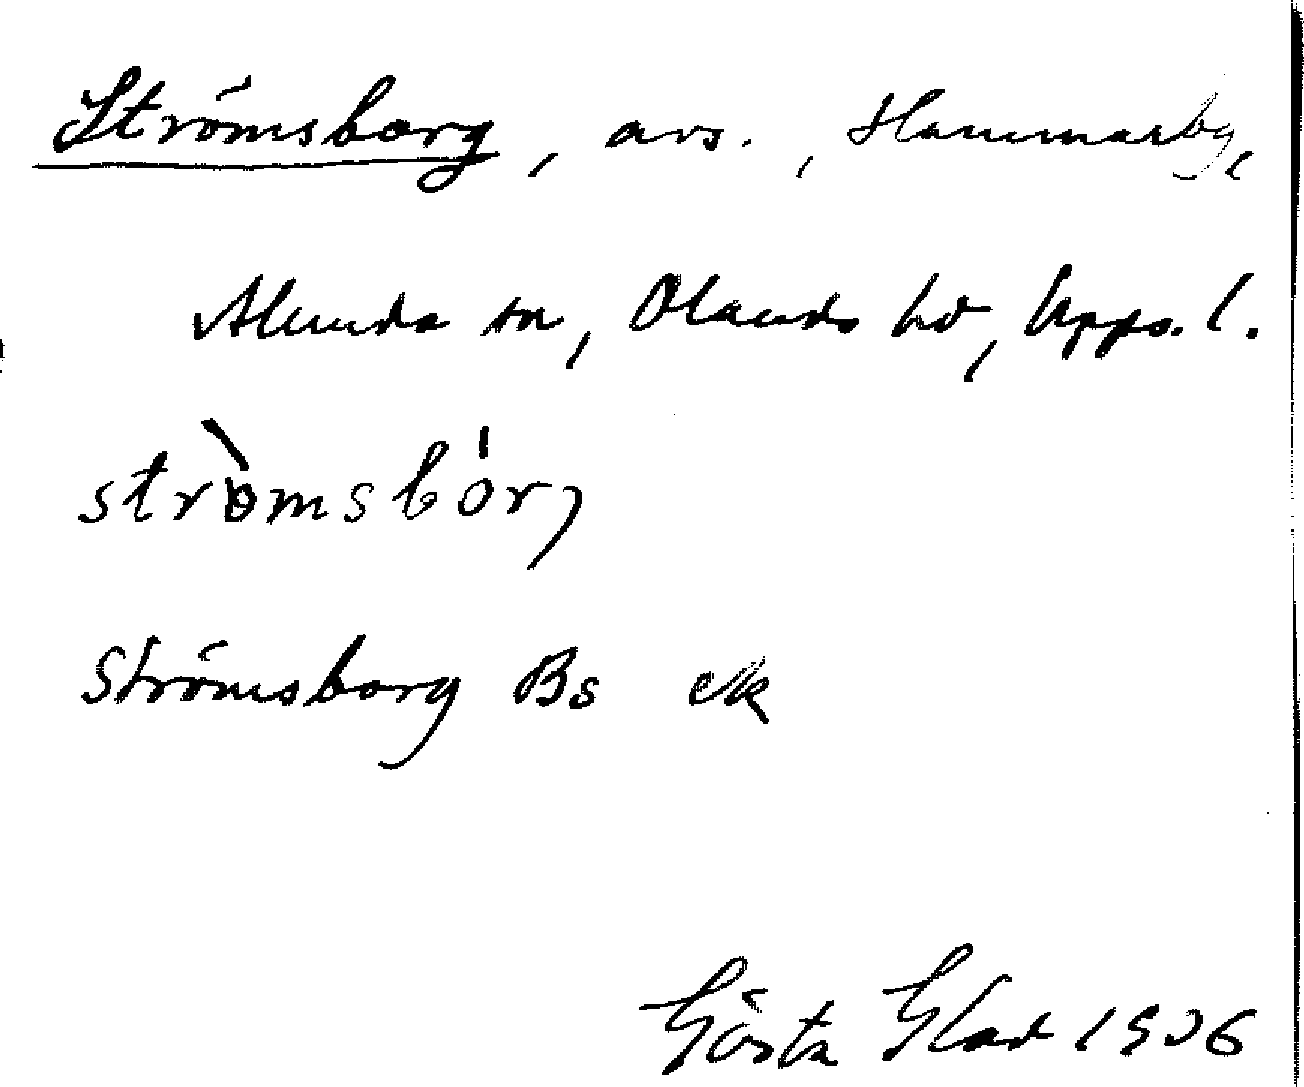 Strömsborg, avs., Hammarby,
Alunda sn, Olands hd, Upps. l.
strò̀msbór,
Strömsborg Bs ek
Gösta Glad 1936